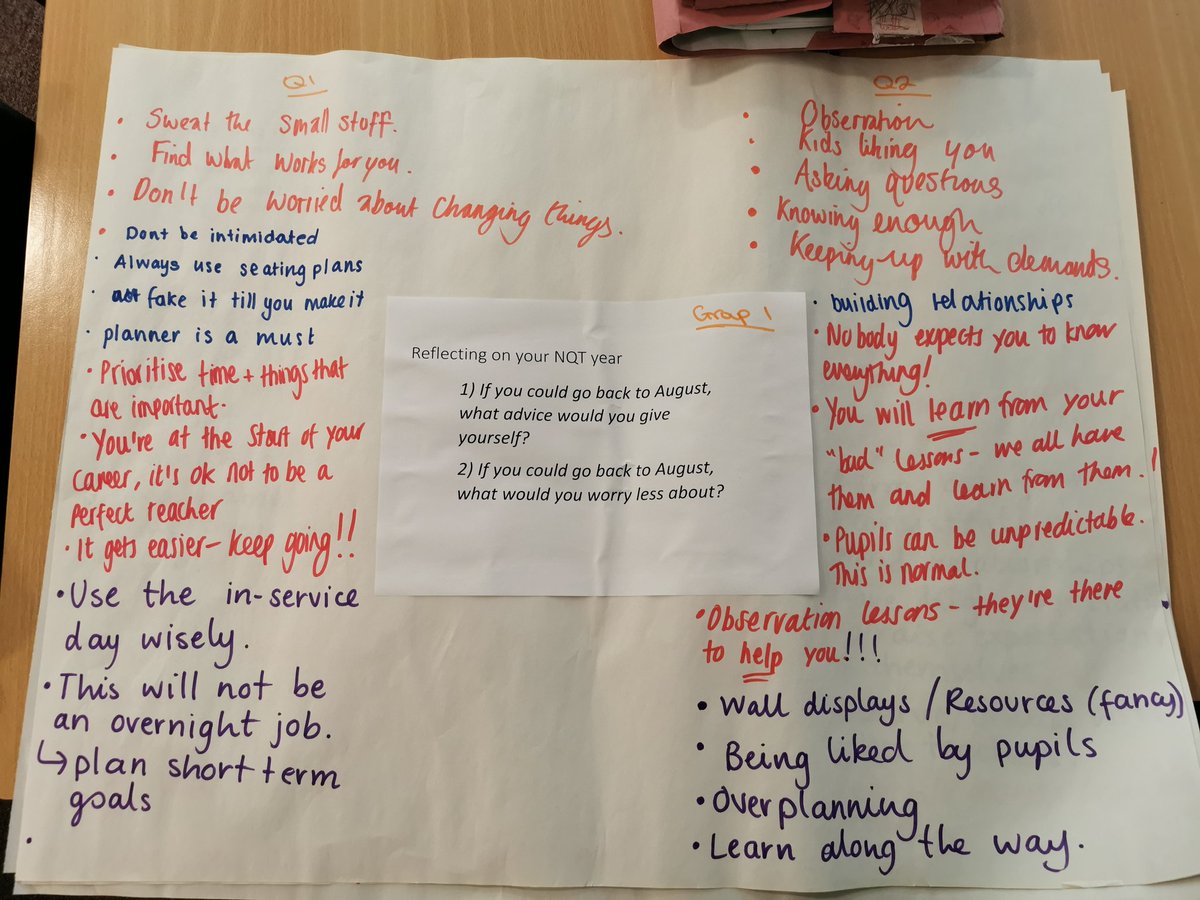 Q1
• Sweat the small stuff.
• Find what works for you.
• Don't be worried about changing things.
• Dont be intimidated
• Always use seating plans
• fake it till you make it
• planner is a must
• Prioritise time + things that
are important.
• You're at the start of your
career, it's ok not to be a
perfect teacher
• It gets easier – keep going!!
• Use the in-service
day wisely.
• This will not be
an overnight job.
↳ plan short term
goals
•
Group 1
Reflecting on your NQT year
1) If you could go back to August,
what advice would you give
yourself?
2) If you could go back to August,
what would you worry less about?
Q2
• Observation
• Kids liking you
• Asking questions
• Knowing enough
• Keeping-up with demands.
• building relationships
• Nobody expects you to know
everything!
• You will learn from your
"bad" lessons – we all have
them and learn from them!
• Pupils can be unpredictable.
This is normal.
• Observation lessons – they're there
to help you!!!
• Wall displays / Resources (fancy)
• Being liked by pupils
• Overplanning
• Learn along the way.